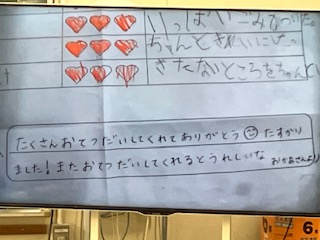 ちゃんときれいにしょ
きたないところをちゃんとい
たくさんおてつだいしてくれてありがとう たすかり
ました! またおてつだいしてくれるとうれしいな おかあさんより
6.